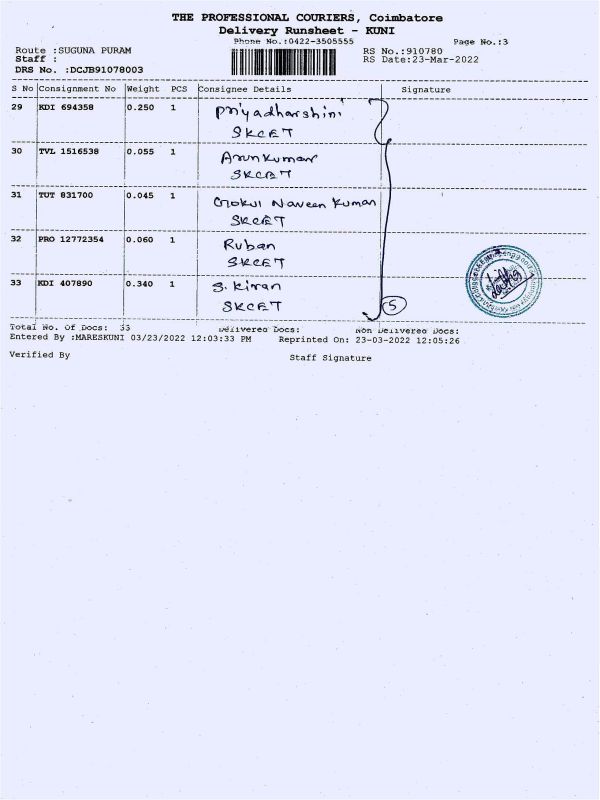 THE PROFESSIONAL COURIERS, Coimbatore
Delivery Runsheet - KUNI
Phone No.:0422-3505555 Page No.:3
Route :SUGUNA PURAM RS No.:910780
Staff : RS Date:23-Mar-2022
DRS No. :DCJB91078003
S No Consignment No Weight PCS Consignee Details Signature
29 KDI 694358 0.250 1 Priyadharshini
SKCET
30 TVL 1516538 0.055 1 Arunkumar
SKCET
31 TUT 831700 0.045 1 Gokul Naveen Kumar
SKCET
32 PRO 12772354 0.060 1 Ruban
SKCET
33 KDI 407890 0.340 1 S. Kiran
SKCET
5
Total No. Of Docs: 33 Delivered Docs: Non Delivered Docs:
Entered By :MARESKUNI 03/23/2022 12:03:33 PM Reprinted On: 23-03-2022 12:05:26
Verified By Staff Signature